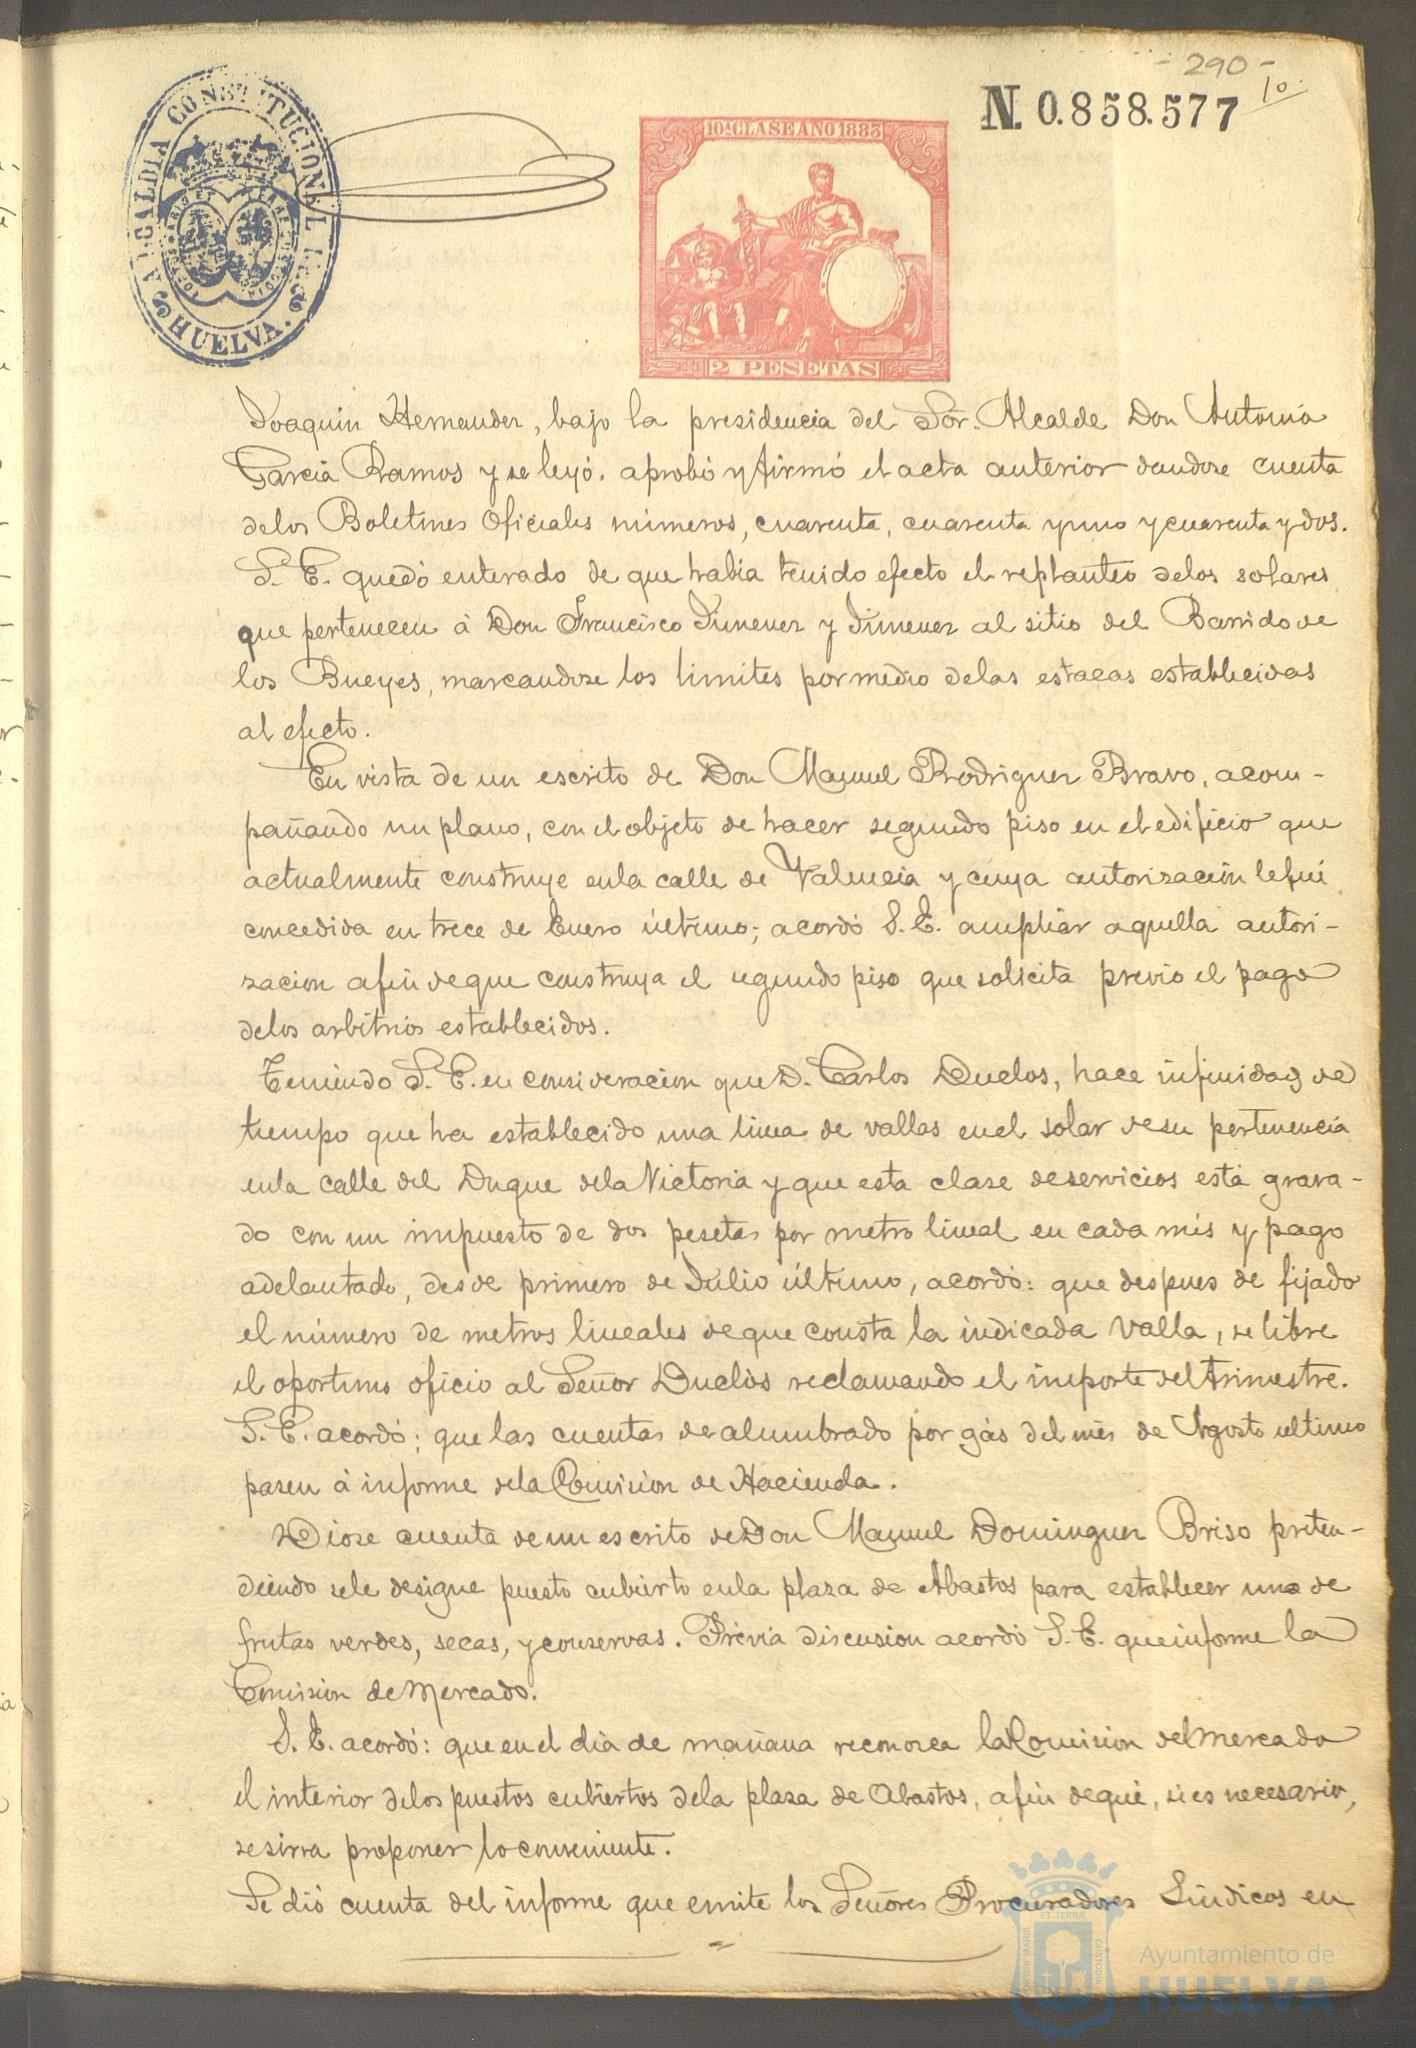 - 290 -
10
N. 0.858.577
ALCALDIA CONSTITUCIONAL DE
HUELVA.
10ª CLASE AÑO 1883
2 PESETAS
Joaquin Hernandez, bajo la presidencia del Sór. Alcalde Don Antonio
Garcia Ramos y se leyó. aprobó y firmó el acta anterior dandose cuenta
delos Boletines Oficiales números, cuarenta, cuarenta y uno y cuarenta y dos.
S. E. quedó enterado de que habia tenido efecto el replanteo delos solares
que pertenecen á Don Francisco Jimenez y Jimenez al sitio del Barrido de
los Bueyes, marcandose los limites por medio delas estacas establecidas
al efecto.
En vista de un escrito de Don Manuel Rodriguez Bravo, acom-
pañando un plano, con el objeto de hacer segundo piso en el edificio que
actualmente construye enla calle de Valencia y cuya autorización le fué
concedida en trece de Enero último; acordó S. E. ampliar aquella autori-
zacion afin de que construya el segundo piso que solicita previo el pago
delos arbitrios establecidos.
Teniendo S. E. en consideracion que D. Carlos Duclos, hace infinidad de
tiempo que ha establecido una linea de vallas en el solar de su pertenencia
enla calle del Duque dela Victoria y que esta clase de servicios está grava-
do con un impuesto de dos pesetas por metro lineal en cada més y pago
adelantado, desde primero de Julio último, acordó: que despues de fijado
el número de metros lineales de que consta la indicada valla, se libre
el oportuno oficio al Señor Duclós reclamando el importe del trimestre.
S. E. acordó; que las cuentas de alumbrado por gás del més de Agosto ultimo
pasen á informe dela Comision de Hacienda.
Diose cuenta de un escrito de Don Manuel Dominguez Briso preten-
diendo sele designe puesto cubierto enla plaza de Abastos para establecer uno de
frutas verdes, secas, y conservas. Prévia discusion acordó S. E. que informe la
Comision de Mercado.
S. E. acordó: que en el dia de mañana reconozca la Comision del Mercado
el interior delos puestos cubiertos dela plaza de Abastos, afin de que, si es necesario,
se sirva proponer lo conveniente.
Se dió cuenta del informe que emite los Señores Procuradores Síndicos en
Ayuntamiento de
HUELVA